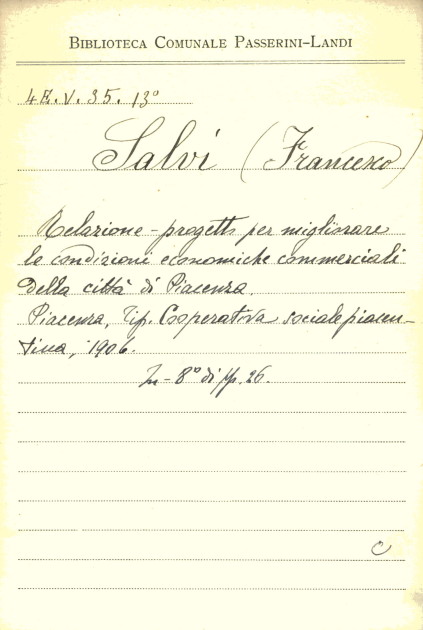 BIBLIOTECA COMUNALE PASSERINI-LANDI
4E.V.35.13º
Salvi (Francesco)
Relazione-progetto per migliorare
le condizioni economiche commerciali
della città di Piacenza.
Piacenza, Tip. Cooperativa sociale piacen-
tina, 1906.
In-8º di pp. 26.
C